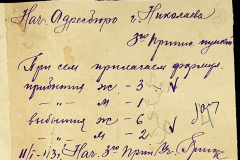 Нач. Адресбюро г. Николаева
3го Притис пункт
При сем прилагаем формул.
прибытия ж - 3
-"- м - 1
выбытия ж - 6
-"- м - 2
Нач. 3го